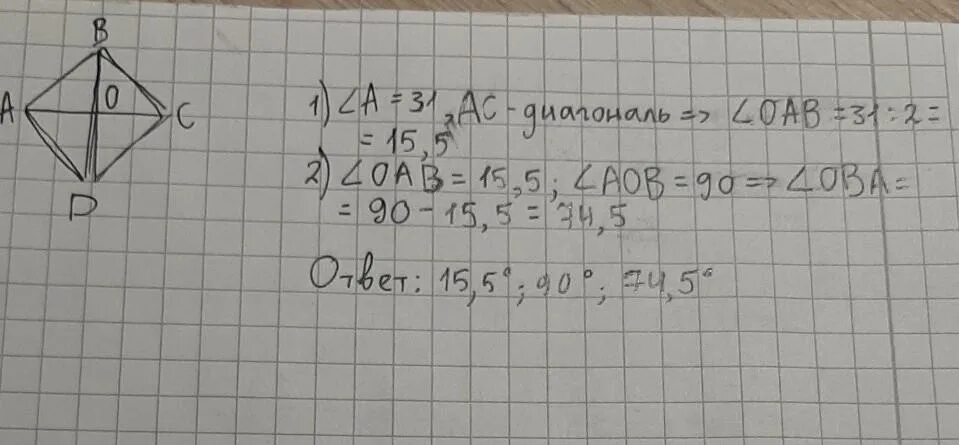 B
A O C
D
1) ∠A = 31, AC - диагональ => ∠OAB = 31 : 2 =
= 15,5
2) ∠OAB = 15,5; ∠AOB = 90 => ∠OBA =
= 90 - 15,5 = 74,5
Ответ: 15,5°; 90°; 74,5°